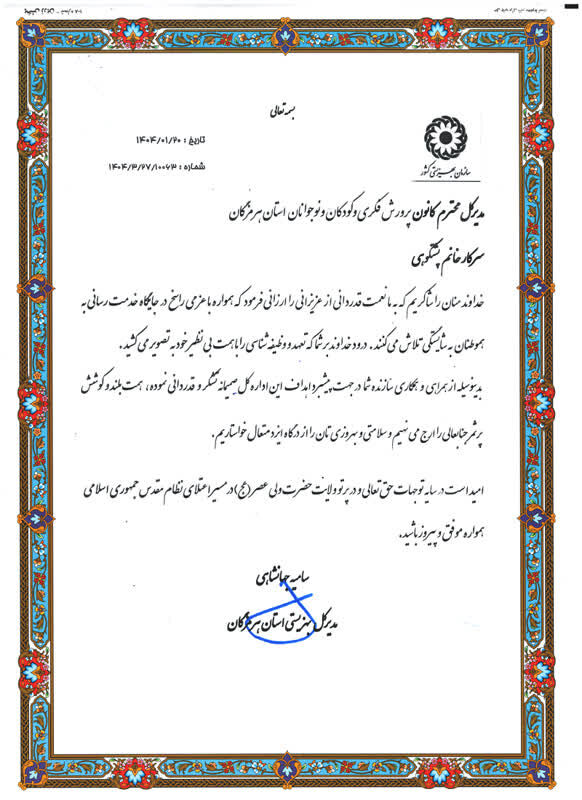 بسمه تعالی
تاریخ : ۱۴۰۴/۰۱/۲۰
شماره : ۱۴۰۴/۳/۲۷/۱۰۰۶۳
سازمان بهزیستی کشور
مدیرکل محترم کانون پرورش فکری و کودکان و نوجوانان استان هرمزگان
سرکار خانم پشتکوهی
خداوند منان را شاکریم که به ما نعمت قدردانی از عزیزانی را ارزانی فرمود که همواره با عزمی راسخ در جایگاه خدمت رسانی به
هموطنان به شایستگی تلاش می‌کنند. درود خداوند بر شما که تعهد و وظیفه شناسی را با همت بی نظیر خود به تصویر می کشید.
بدینوسیله از همراهی و همکاری سازنده شما در جهت پیشبرد اهداف این اداره کل صمیمانه تشکر و قدردانی نموده، همت بلند و کوشش
پرثمر جنابعالی را ارج می نهیم و سلامتی و بهروزی تان را از درگاه ایزد متعال خواستاریم.
امید است در سایه توجهات حق تعالی و در پرتو ولایت حضرت ولی عصر (عج) در مسیر اعتلای نظام مقدس جمهوری اسلامی
همواره موفق و پیروز باشید.
سامیه جهانشاهی
مدیرکل بهزیستی استان هرمزگان